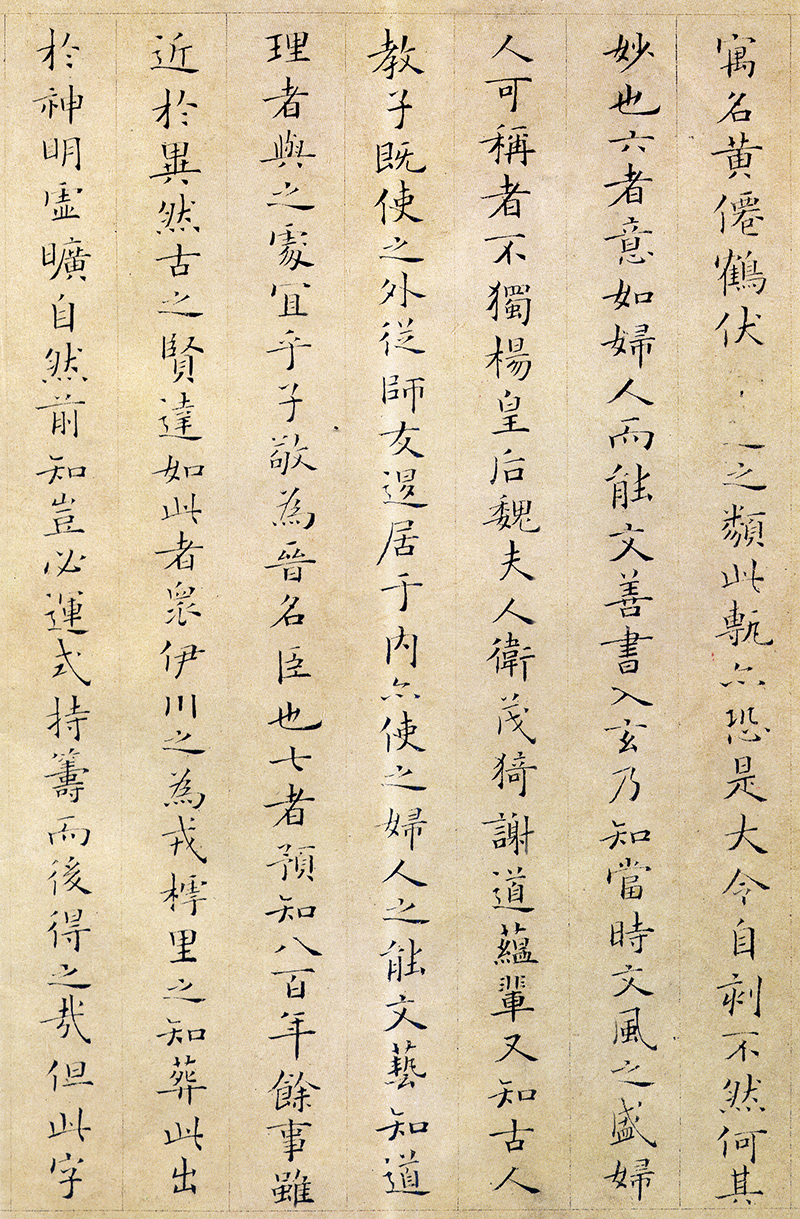 寓名黃僊鶴伏之類此甎亦恐是大令自刻不然何其
妙也六者意如婦人而能文善書入玄乃知當時文風之盛婦
人可稱者不獨楊皇后魏夫人衛茂猗謝道蘊輩又知古人
教子既使之外從師友退居于内亦使之婦人之能文藝知道
理者與之處宜乎子敬為晉名臣也七者預知八百年餘事雖
近於異然古之賢達如此者眾伊川之為戎樗里之知葬此出
於神明虛曠自然前知豈必運式持籌而後得之哉但此字